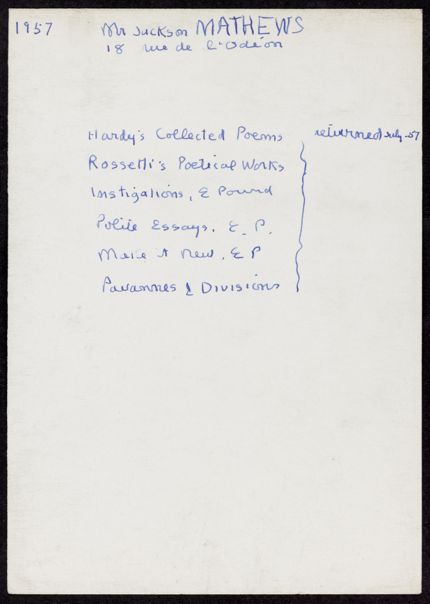 1957 Mr Jackson MATHEWS
18 rue de l'Odéon
Hardy's Collected Poems returned July 57
Rossetti's Poetical Works
Instigations, E Pound
Polite Essays, E. P.
Make it New, E P
Pavannes & Divisions